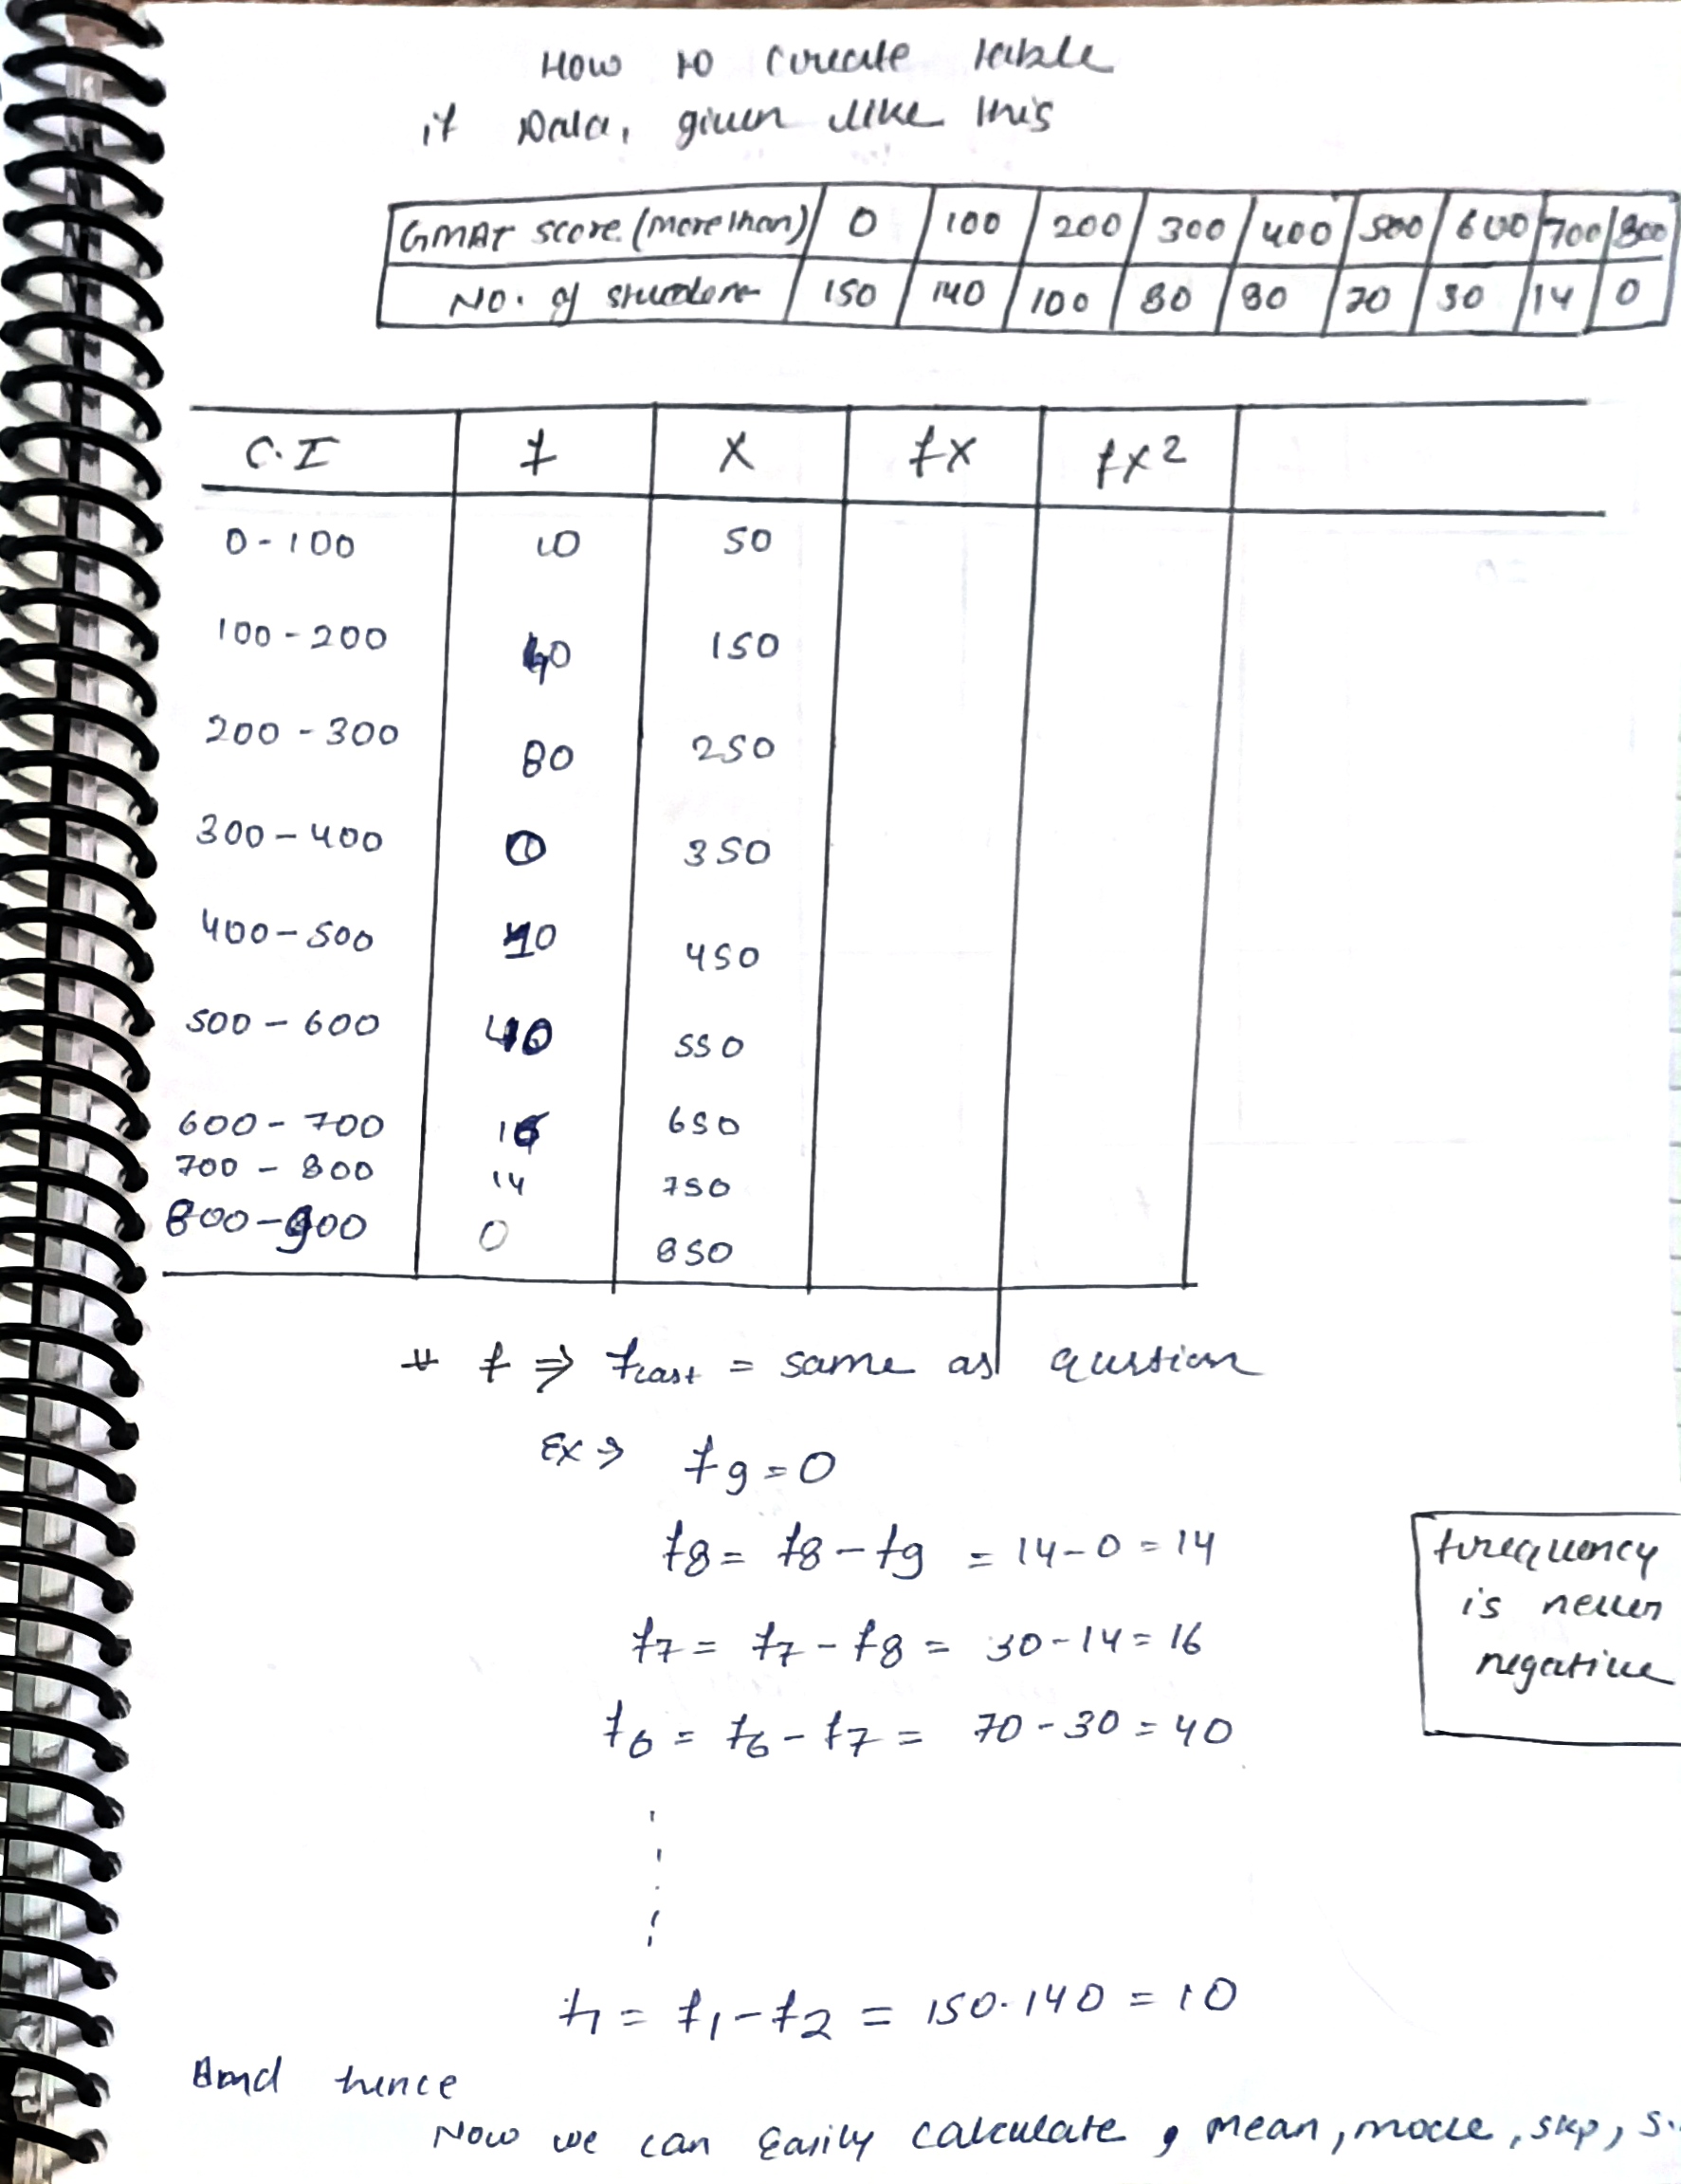 How to create table
if Data, given like this
GMAT score (more than) 0 100 200 300 400 500 600 700 800
No. of student 150 140 100 80 80 70 30 14 0
C.I f X fX fX²
0-100 10 50
100-200 40 150
200-300 80 250
300-400 0 350
400-500 10 450
500-600 40 550
600-700 16 650
700-800 14 750
800-900 0 850
# f ⇒ flast = same as question
Ex ⇒ f9 = 0
f8 = f8 - f9 = 14-0 = 14
f7 = f7 - f8 = 30-14 = 16
f6 = f6 - f7 = 70-30 = 40
frequency
is never
negative
f1 = f1 - f2 = 150-140 = 10
And hence
Now we can easily calculate, mean, mode, skp, S.